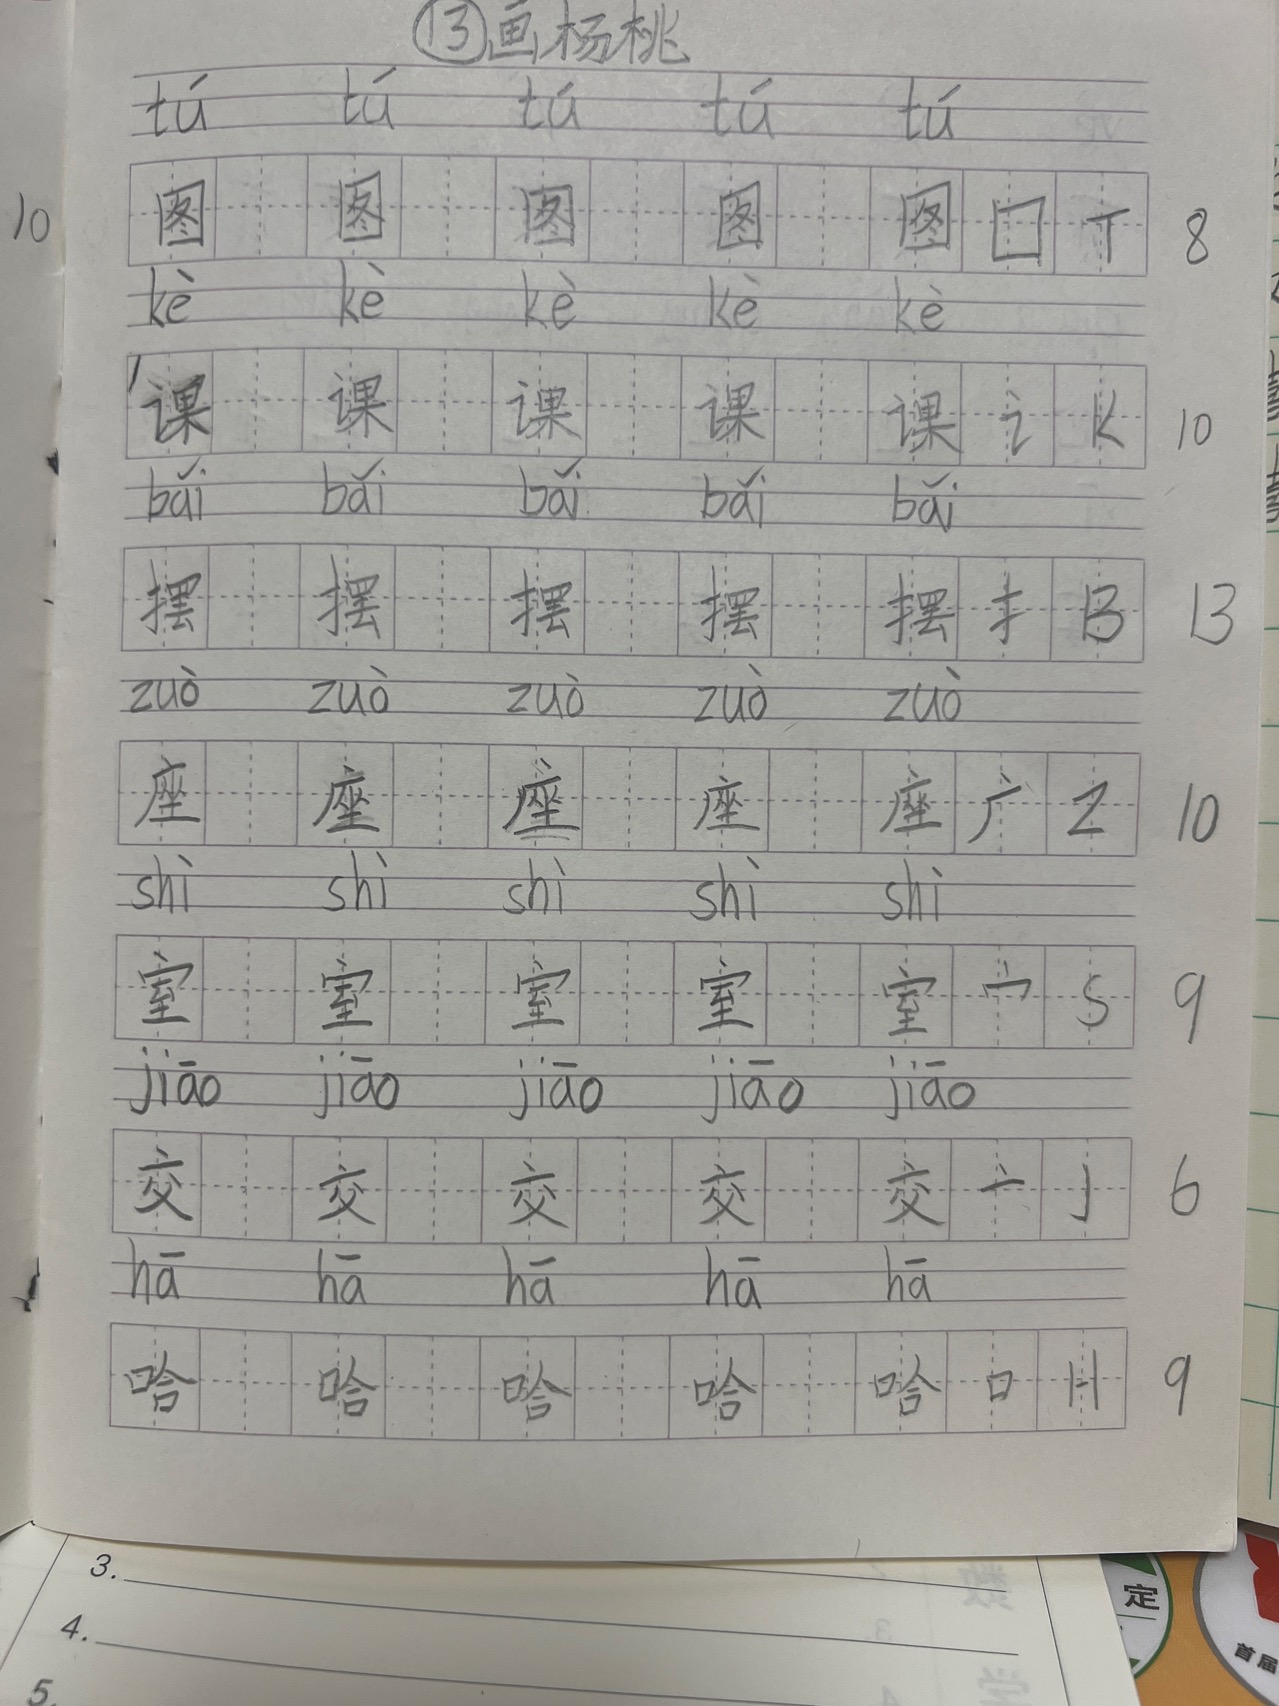 ⑬画杨桃
tú tú tú tú tú
10
图 图 图 图 图 囗 T 8
kè kè kè kè kè
课 课 课 课 课 讠 K 10
bǎi bǎi bǎi bǎi bǎi
摆 摆 摆 摆 摆 扌 B 13
zuò zuò zuò zuò zuò
座 座 座 座 座 广 Z 10
shì shì shì shì shì
室 室 室 室 室 宀 S 9
jiāo jiāo jiāo jiāo jiāo
交 交 交 交 交 亠 J 6
hā hā hā hā hā
哈 哈 哈 哈 哈 口 H 9
3.
4.
5.
定
首届